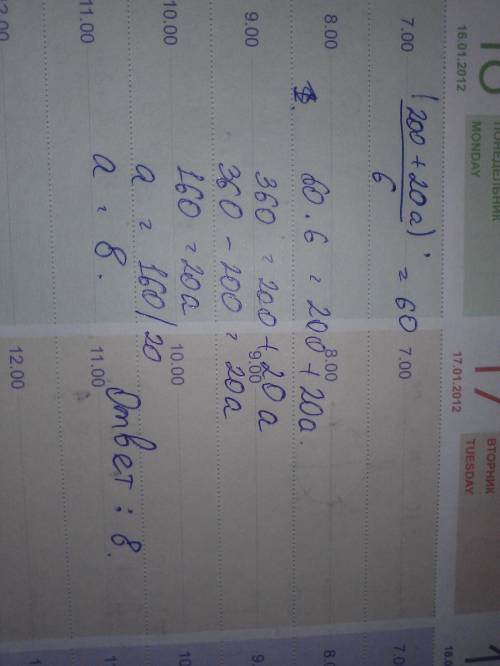 16.01.2012
ПОНЕДЕЛЬНИК
MONDAY
17.01.2012
ВТОРНИК
TUESDAY
18.
7.00
7.00
7.0
(200 + 20a)/6 = 60
8.00
8.00
8.0
60 . 6 = 200 + 20a.
9.00
9.00
9.
360 = 200 + 20a
360 - 200 = 20a
10.00
10.00
10
160 = 20a
a = 160/20
11.00
11.00
a = 8.
Ответ : 8.
12.00
12.00